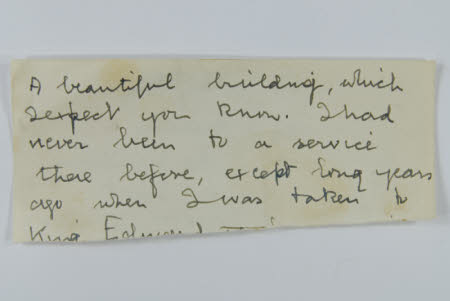 A beautiful building, which
I expect you know. I had
never been to a service
there before, except long years
ago when I was taken to
King Edward